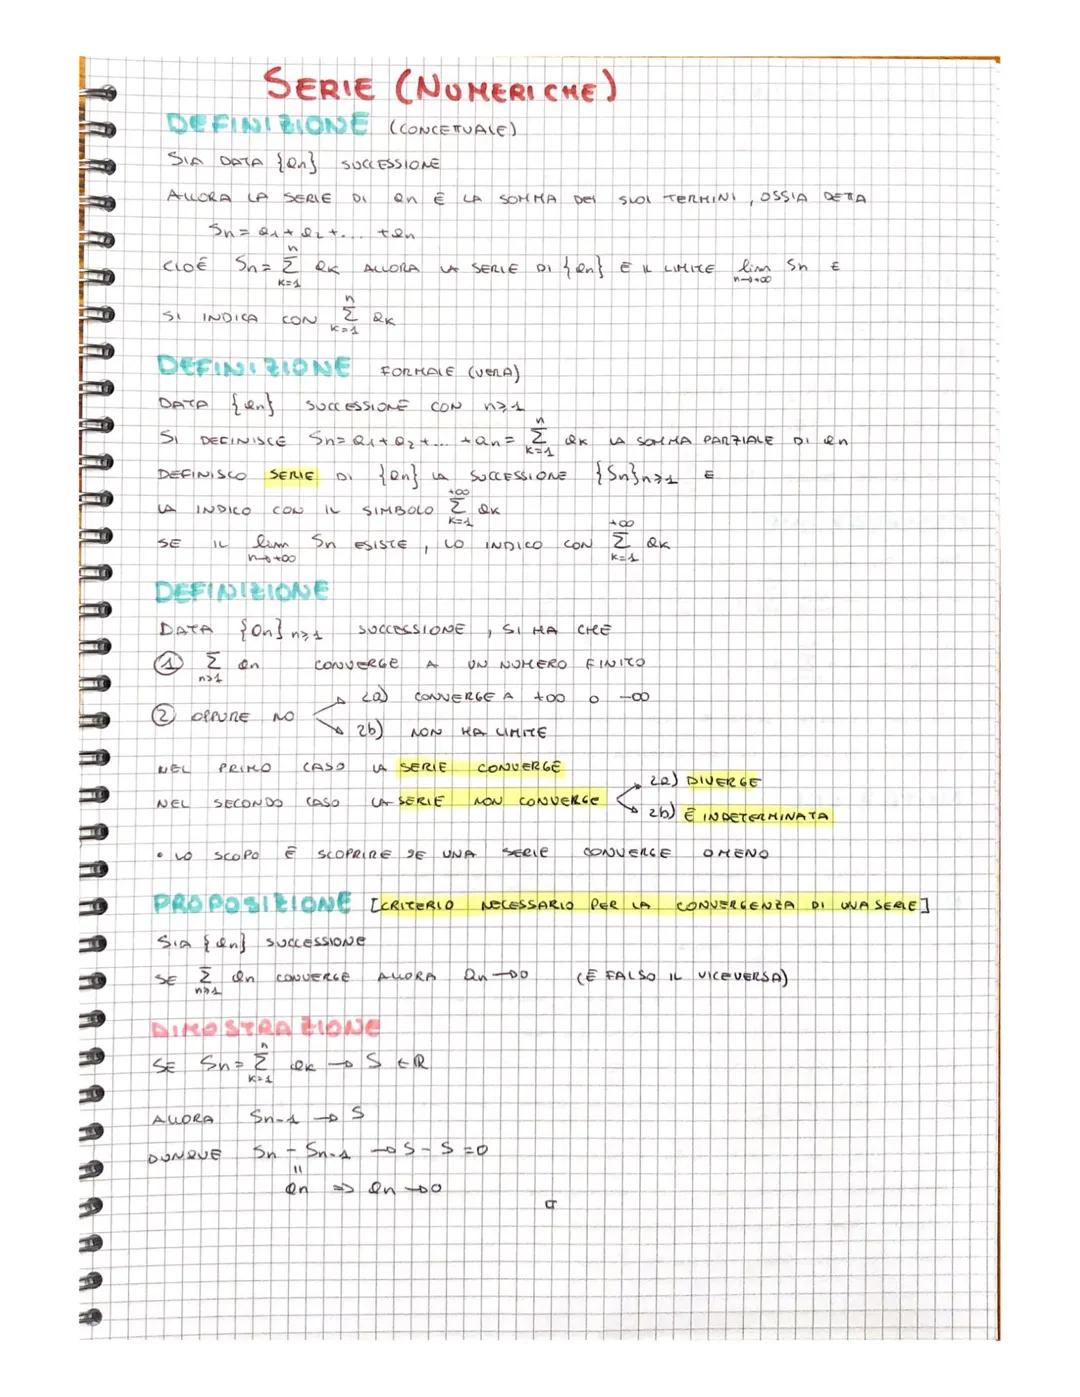 SERIE (NUMERICHE)
DEFINIZIONE (CONCETTUALE)
SIA DATA {an} SUCCESSIONE
ALLORA LA SERIE DI an È LA SOMMA DEI SUOI TERMINI, OSSIA DETTA
Sn = a1 + a2 + ... + an
CIOÈ Sn = ∑_{k=1}^{n} ak ALLORA LA SERIE DI {an} È IL LIMITE lim_{n→+∞} Sn E
SI INDICA CON ∑_{k=1}^{n} ak
DEFINIZIONE FORMALE (VERA)
DATA {an} SUCCESSIONE CON n≥1
SI DEFINISCE Sn = a1 + a2 + ... + an = ∑_{k=1}^{n} ak LA SOMMA PARZIALE DI an
DEFINISCO SERIE DI {an} LA SUCCESSIONE {Sn}n≥1 E
LA INDICO CON IL SIMBOLO ∑_{k=1}^{+∞} ak
SE IL lim_{n→+∞} Sn ESISTE, LO INDICO CON ∑_{k=1}^{+∞} ak
DEFINIZIONE
DATA {an}n≥1 SUCCESSIONE, SI HA CHE
① ∑_{n≥1} an CONVERGE A UN NUMERO FINITO
2a) CONVERGE A +∞ O -∞
② OPPURE NO
2b) NON HA LIMITE
NEL PRIMO CASO LA SERIE CONVERGE
2a) DIVERGE
NEL SECONDO CASO LA SERIE NON CONVERGE
2b) È INDETERMINATA
• LO SCOPO È SCOPRIRE SE UNA SERIE CONVERGE O MENO
PROPOSIZIONE [CRITERIO NECESSARIO PER LA CONVERGENZA DI UNA SERIE]
SIA {an} SUCCESSIONE
SE ∑_{n≥1} an CONVERGE ALLORA an → 0 (È FALSO IL VICEVERSA)
DIMOSTRAZIONE
SE Sn = ∑_{k=1}^{n} ak → S ∈ ℝ
ALLORA Sn-1 → S
DUNQUE Sn - Sn-1 → S - S = 0
=
an => an → 0